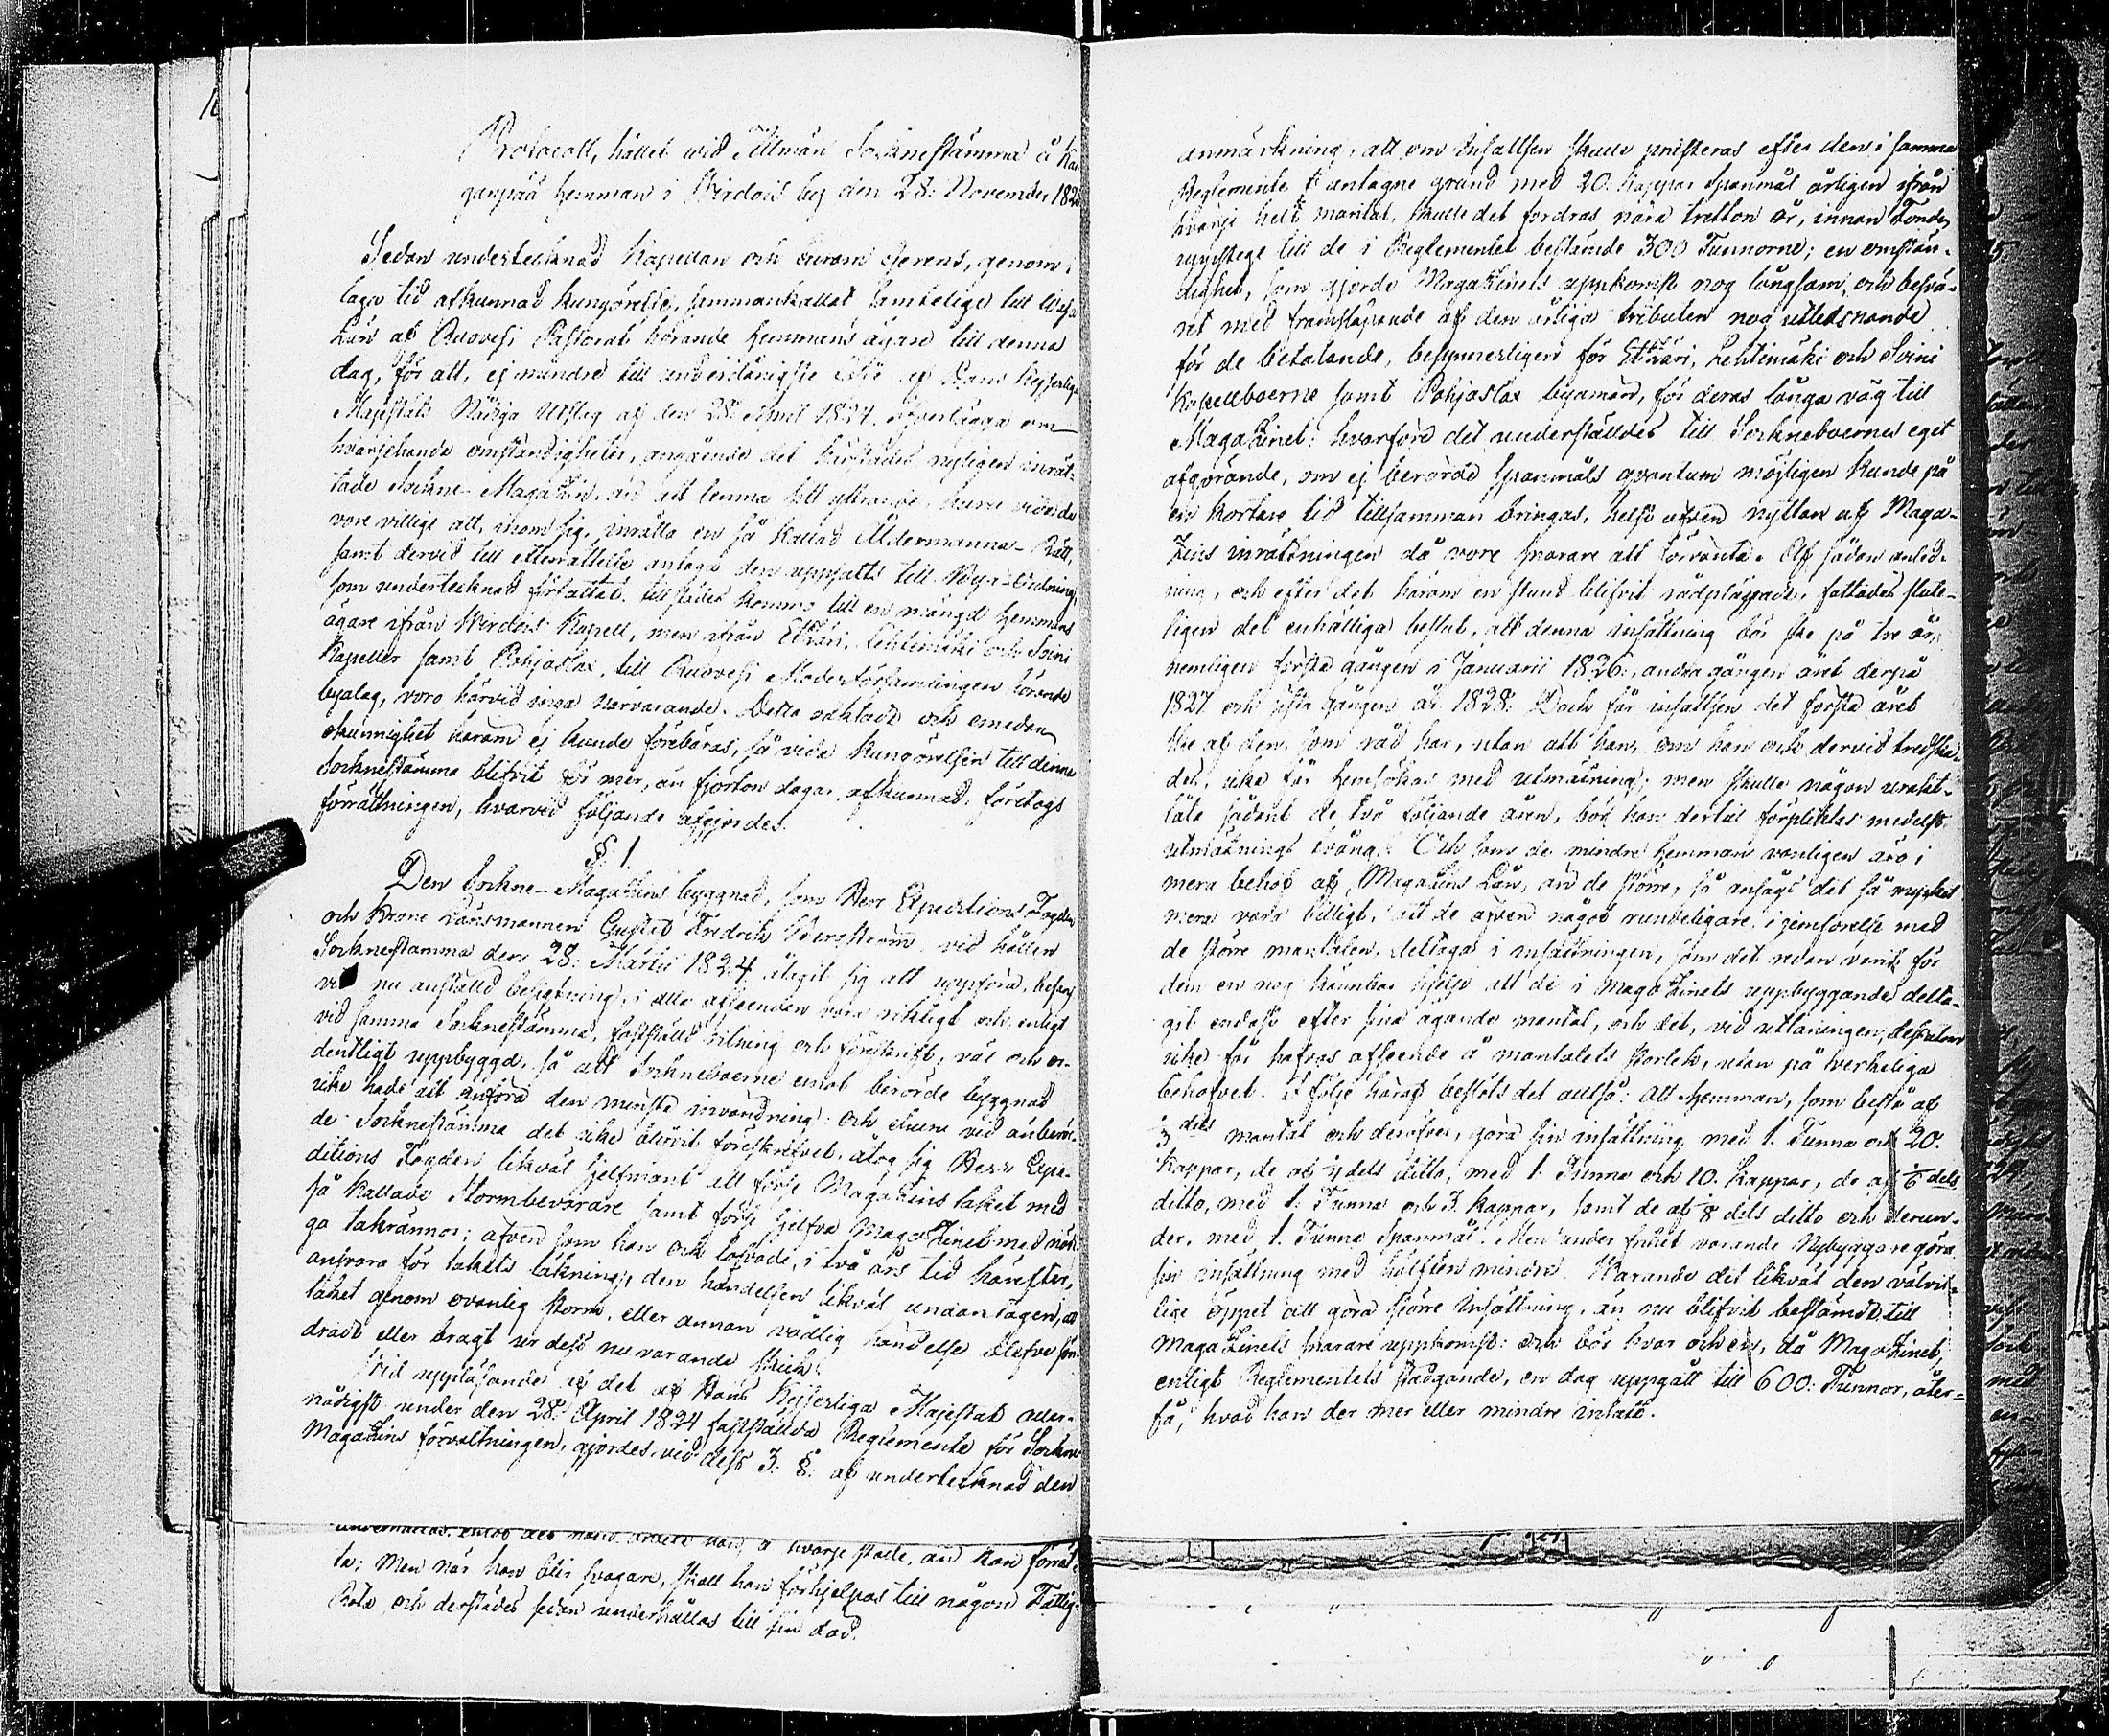 Protocoll, hållet wid Allmän Sockneståmma å Kan
ganpää hemman i Wirdois by den 28: November 182
Sedan undertecknad Kapellan och Curam Gerens, genom i
laga tid afkunnad kungörelse, sammankallat samtelige till Wasa
Län af Ruovesi Pastorat hörande Hemmans ägare till denna
dag, för att, ej mindre till underdånigste af Hans Kejserliga
Majestäts Nådiga Utslag af den 28 April 1824. öfverlägga om
hvarjehanda omständigheter, angående det härstädes nyligen inrät-
tade Sockne-Magazin, än ock lemna sitt yttrande, huru vida de
vore villige att, inom sig, inrätta en så kallad Åldermanna-Rätt,
samt dervid till efterrättelse antaga den uppsatts till Byaordning,
som undertecknad författat. tillstädes kommo till en mängd Hemmans
ägare ifrån Wirdois Kapell, men ifrån Etseri, Lehtimäki och Soini
Kapeller samt Pohjaslax, till Ruovesi Moderförsamlingen hörande
byalag, voro härvid inga närvarande. Detta oaktadt och emedan
okunnighet härom ej kunde förebäras, så vida kungörelsen till denna
Socknestämma blifvit för mer, än fjorton dagar, afkunnad, företogs
förrättningen, hvarvid följande afgjordes.
§. 1.
Den Sockne-Magazins byggnad, som Herr Expeditions Fogden
och Krono Länsmannen Gustaf Fredrik Bergström, vid hållen
Socknestamma den 28: Martii 1824 åtagit sig att uppföra, befans
vid nu anställd besigtning, i alla afseenden vara riktigt och, enligt
vid samma Socknestämma, fastställd ritning och föreskrift, väl och or-
dentligt uppbyggd, så att Sockneboerne emot berörde byggnad
icke hade att anföra den minsta invändning: och ehuru vid anberör-
de Socknestämma det icke blifvit föreskrifvet, åtog sig Herr Expe-
ditions Fogden likväl sjelfmant att förse Magazins taket med
så kallade Stormbevarare samt förse sjelfva Magazinet med nödi-
ga takrännor; äfven som han och lofvade, i två års tid härefter,
ansvara för takets läkning, den händelsen likväl undantagen, att
taket genom ovanlig storm, eller annan vådlig händelse blefve sön-
dradt eller bragt ur dess nu varande skick.
Vid uppläsande af det af Hans Kejserliga Majestät aller-
nådigst under den 28: April 1824 fastställda Reglemente för Sockne
Magazins förvaltningen, gjordes, vid dess 3: §: af undertecknad den
underhållas, emot det han arbetar han, å hvarje ställe, än kan förrät-
ta; Men när han blir svagare, skall han förhjelpas till någon Fattig
Rota och derstädes sedan underhållas till sin död.
anmärkning, att om insattsen skulle præsteras efter den i samma
Reglemente antagne grund med 20: kappar Spanmål årligen ifrån
hvarje helt mantal, skulle det fordras nära tretton år, innan Fonden
uppstege till de i Reglementet bestämde 300 Tunnorne; en omstän-
dighet, som gjorde Magazinets uppkomst nog långsam, och besvä-
ret med framskapande af den årliga tributen nog utledsnande
för de betalande, besynnerligen för Etseri, Lehtimäki och Soini
Kapellboerne samt Pohjaslax byamän, för deras långa väg till
Magazinet; hvarföre det underställdes till Sockneboernes eget
afgörande, om ej berörde Spanmåls qvantum möjligen kunde på
en kortare tid tillsamman bringas, helst äfven nyttan af Maga-
zins inrättningen då vore snarare att förvänta. Af sådan anled-
ning, och efter det härom en stund blifvit rådplägadt, fattades slute-
ligen det enhälliga beslut, att denna insättning bör ske på tre år,
nemligen första gången i Januarii 1826:, andra gången året derpå
1827 och sista gången år 1828: Dock får insattsen det första året
ske af den, som råd har, utan att han, om han och dervid tredska-
des, icke får hemsökas med utmätning; men skulle någon uraktt-
låta sådant de två följande åren, bör han dertill förpliktas medelst
utmätnings tvång. Och som de mindre Hemman vanligen äro i
mera behof af Magazins Lån, än de större, så ansågs det så mycket
mera vara billigt, att de äfven något rundeligare, i jemförelse med
de större mantalen, deltaga i insättningen, som det redan varit för
dem en nog kännbar hjelp att de i Magazinets uppbyggande delta-
git endast efter sina ägande mantal, och det, vid utlåningen, dessutom
icke får hafvas afseende å mantalets storlek, utan på verkeliga
behofvet. I följe häraf beslöts det alltså: att Hemman, som bestå af
1/3 dels mantal och derofver, göra sin insättning med 1. Tunna och 20.
kappar, de af 1/4 dels ditto, med 1. Tunna och 10. kappar, de af 1/6 dels
ditto, med 1. Tunna och 3. kappar, samt de af 1/8 dels ditto och derun-
der, med 1. Tunna Spanmål. Men under frihet varande Nybyggare göra
sin insättning med hälften mindre. Warande det likväl den välvil-
lige öppet att göra större insättning, än nu blifvit bestämdt, till
Magazinets snarare uppkomst: och bör hvar och en, då Magazinet,
enligt Reglementets stadgande, en dag uppgått till 600: Tunnor, åter-
få, hvad han der mer eller mindre insatt.